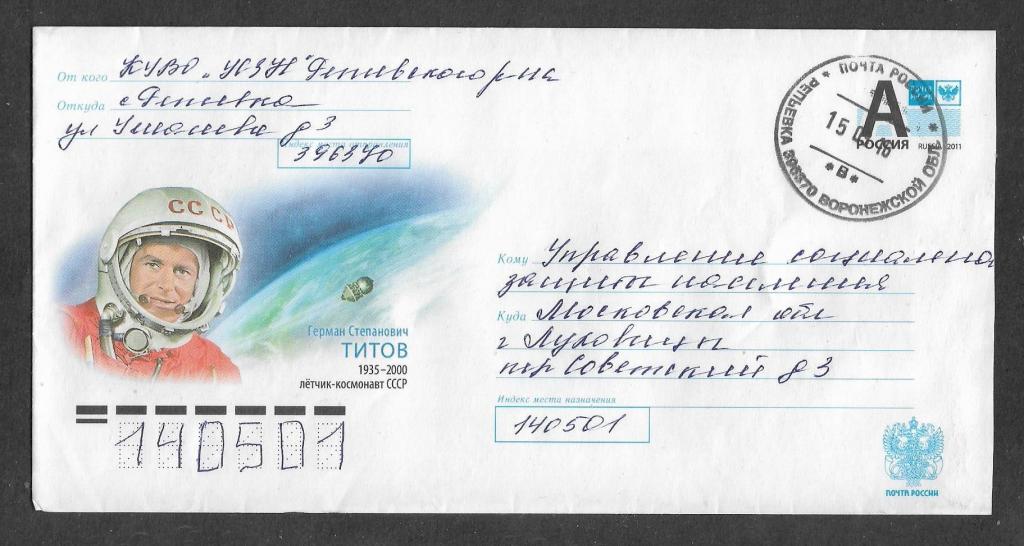 От кого КУВО "УСЗН" Репьевского р-на
Откуда с Репьевка
ул Ушалева д 3
Индекс места отправления
396370
СССР
Герман Степанович
ТИТОВ
1935–2000
лётчик-космонавт СССР
140501
А
РОССИЯ RUSSIA 2011
ПОЧТА РОССИИ
РЕПЬЕВКА 396370 ВОРОНЕЖСКОЙ ОБЛ
15 16
*В*
Кому Управление социальной
защиты населения
Куда Московская обл
г Луховицы
пер Советский д 3
Индекс места назначения
140501
ПОЧТА РОССИИ